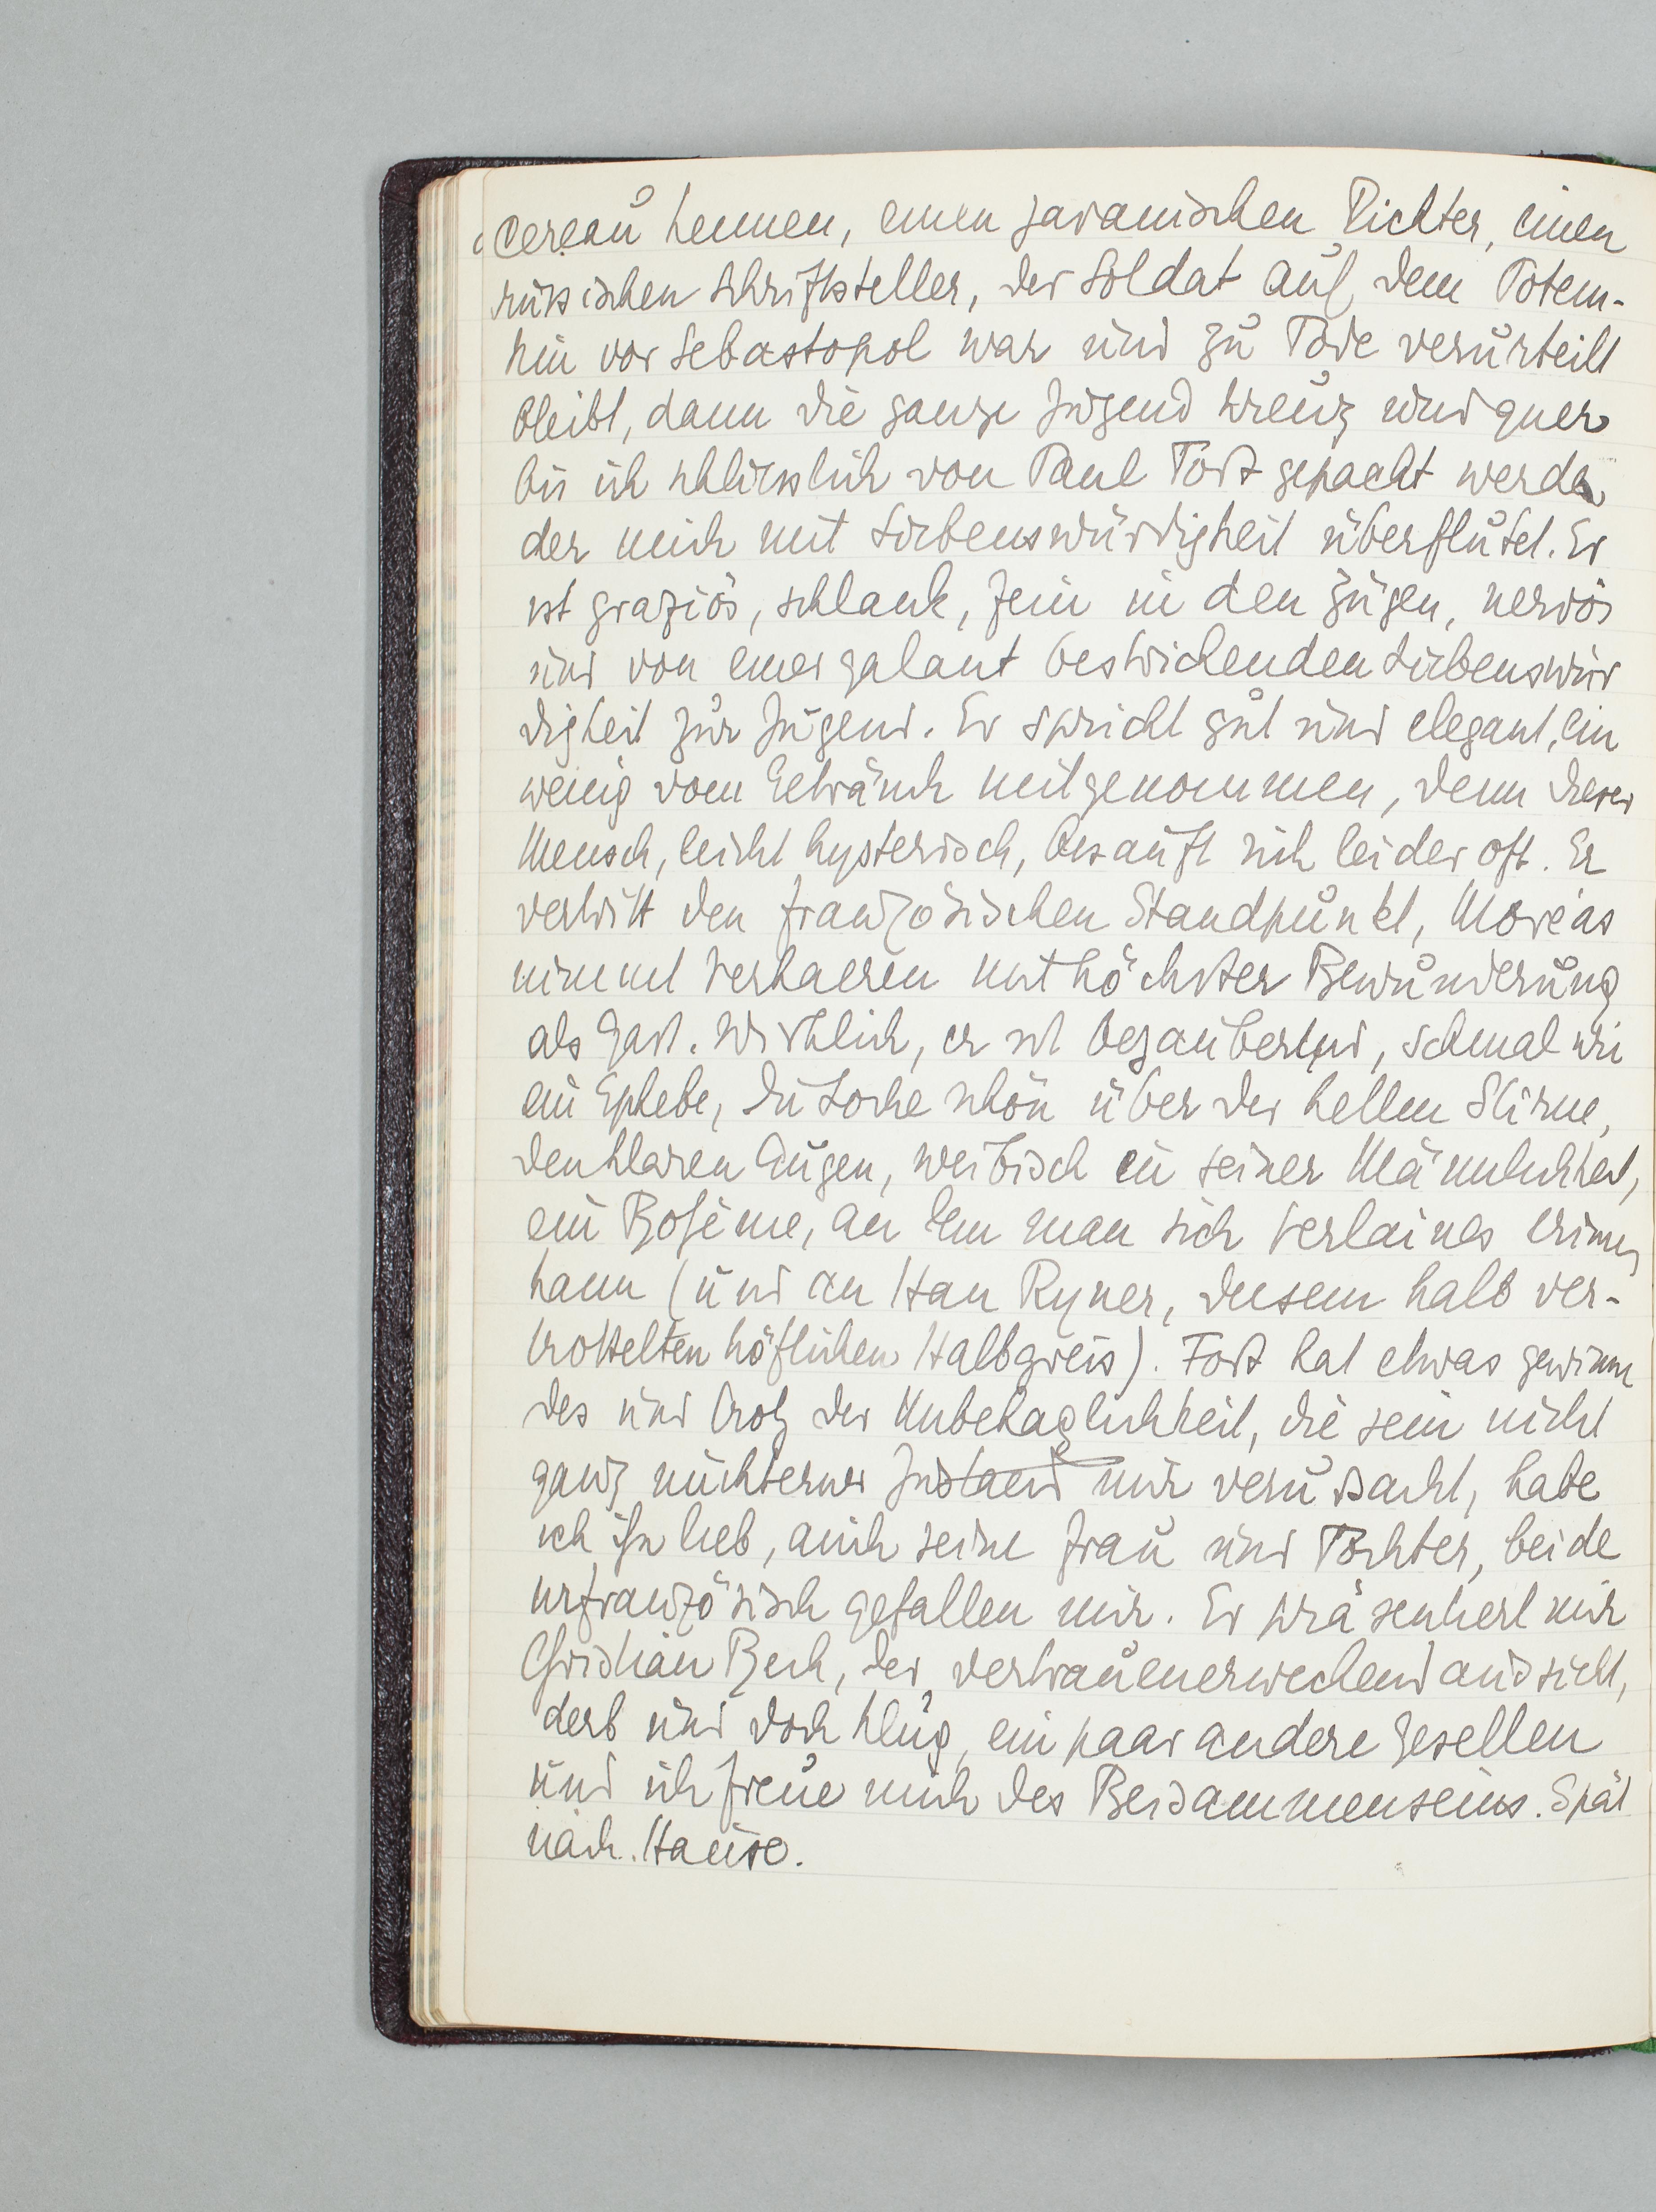 cereau kennen, einen javanischen Dichter, einen
russischen Schriftsteller, der Soldat auf dem Potem-
kin vor Sebastopol war und zu Tode verurteilt
bleibt, dann die ganze Jugend kreuz und quer
bis ich schliesslich von Paul Fort gepackt werde,
der mich mit Liebenswürdigkeit überflutet. Er
ist graziös, schlank, fein in den Zügen, nervös
und von einer galant bestrickenden Liebenswür
digkeit zur Jugend. Er spricht gut und elegant, ein
wenig vom Getränk mitgenommen, denn dieser
Mensch, leicht hysterisch, besauft sich leider oft. Er
vertritt den französischen Standpunkt, Moréas
nimmt Verhaeren mit höchster Bewunderung
als Gast. Wirklich, er ist bezaubernd, schmal wie
ein Ephebe, die Locke schön über der hellen Stirne,
den klaren Augen, weibisch in seiner Männlichkeit,
ein Bohème, an dem man sich Verlaines erinnern
kann (und an Han Ryner, diesem halb ver-
trottelten höflichen Halbgreis). Fort hat etwas gewinnen
des und trotz der Unbehaglichkeit, die sein nicht
ganz nüchterner Zustand mir verursacht, habe
ich ihn lieb, auch seine Frau und Tochter, beide
urfranzösisch gefallen mir. Er präsentiert mir
Christian Beck, der vertrauenerweckend aussieht,
derb und doch klug, ein paar andere Gesellen
und ich freue mich des Beisammenseins. Spät
nach Hause.